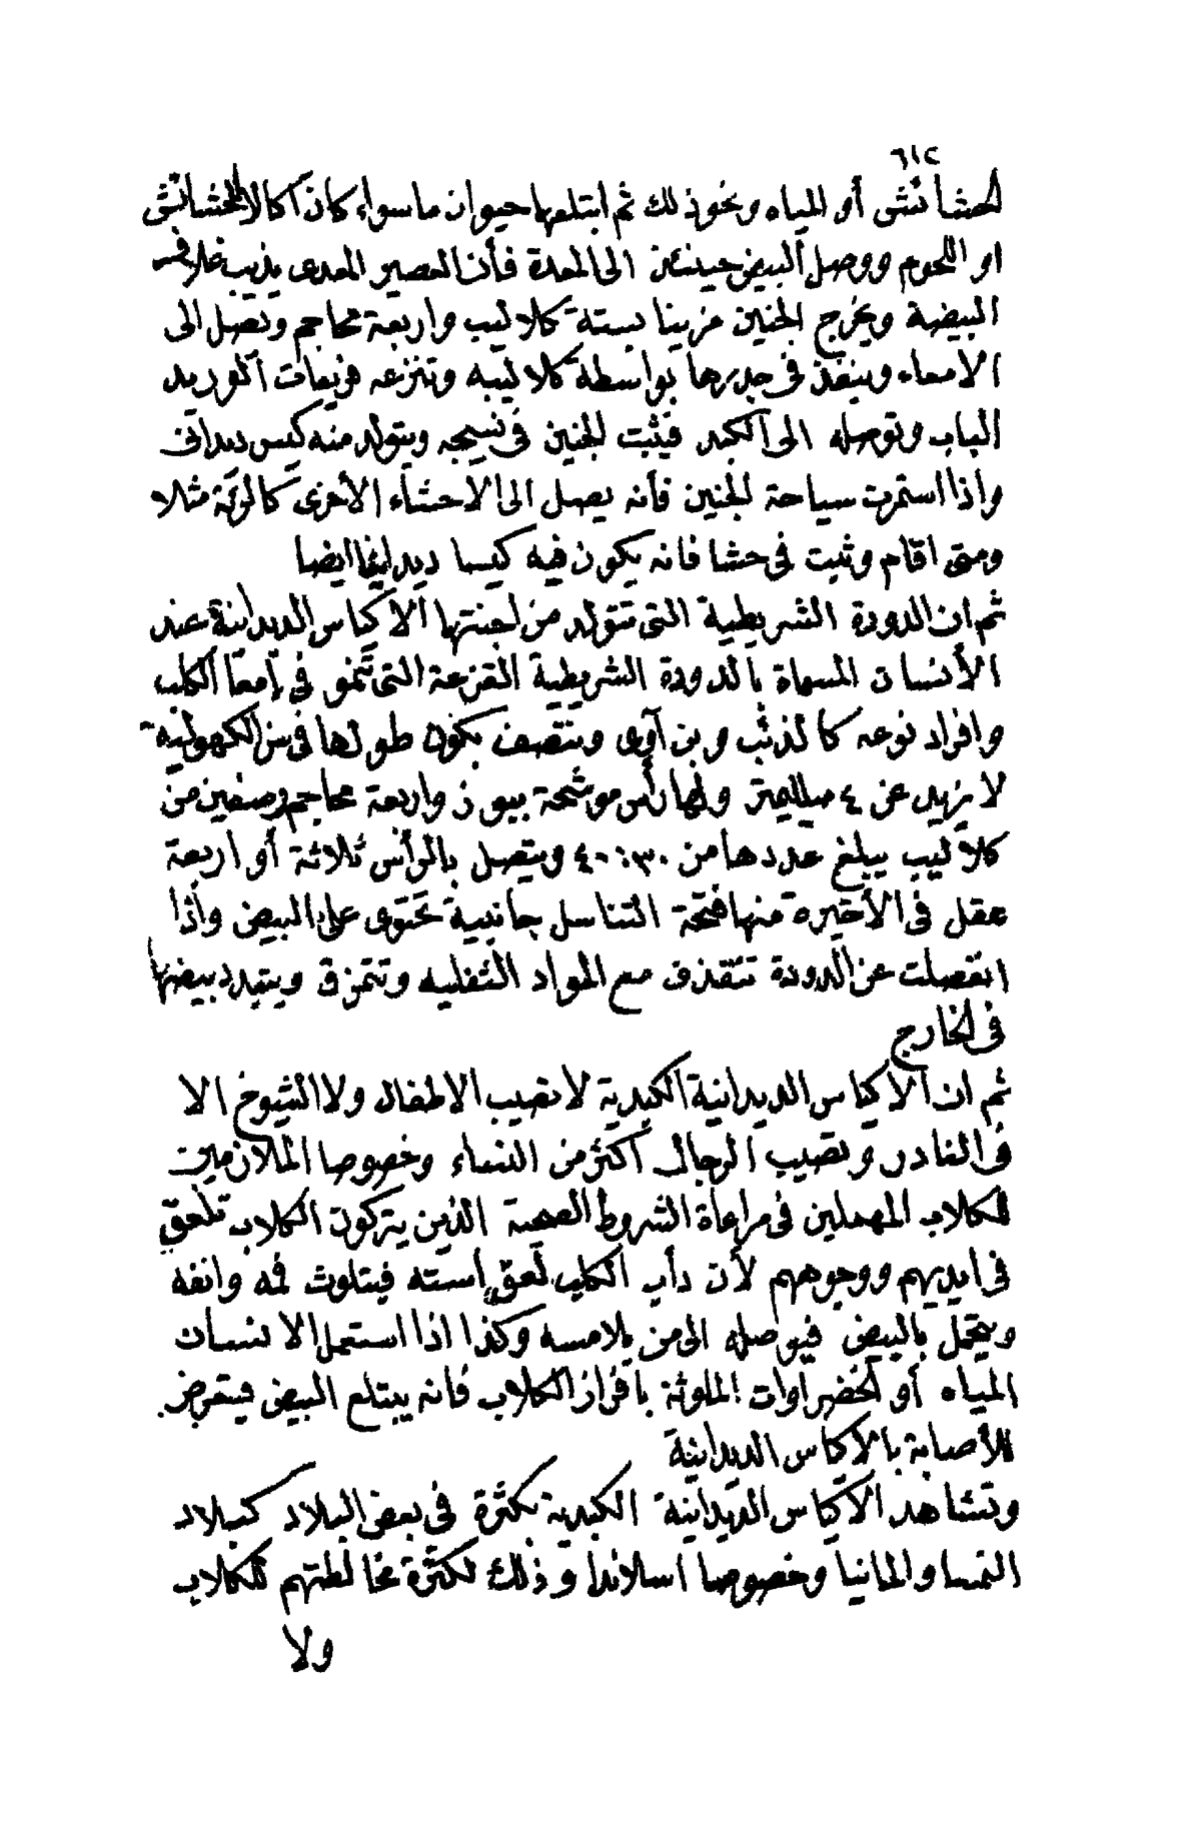 ٦١٢
الحشائش أو المياه ونحوذلك ثم ابتلعها حيوان ما سواء كان آكالا للحشائش
او اللحوم ووصل البيض حينئذ الى المعدة فأن العصير المعدى يذيب غلاف
البيضة ويخرج الجنين مزينا بستة كلاليب واربعة محاجم ونصل الى
الامعاء وينفذ فى جدرها بواسطة كلاليبه وتنزعه فريعات الوريد
الباب وتوصله الى الكبد فيثبت الجنين فى نسيجه ويتولد منه كيس ديدانى
واذا استمرت سياحة الجنين فأنه يصل الى الاحشاء الأخرى كالرئة مثلا
ومتى اقام وثبت فى حشا فانه يكون فيه كيسا ديدانيا ايضا
ثم ان الدودة الشريطية التى تتولد من اجنتها الاكياس الديدانية عند
الأنسان المسماة بالدودة الشريطية القزعة التى تنمو فى امعا الكلب
وافراد نوعه كالذئب وبن آوى وتتصف بكون طولها فى سن الكهولية
لا يزيد عن ٤ ميلليمتر ولها رأس موشحة ببوز واربعة محاجم وصفين من
كلاليب يبلغ عددها من ٣٠:٤٠ ويتصل بالرأس ثلاثة أو اربعة
عقل فى الأخيرة منها فتحة التناسل جانبية تحتوى على البيض وأذا
انفصلت عن الدودة تنقذف مع المواد الثفليه وتتمزق ويتبدد بيضها
فى الخارج
ثم ان الاكياس الديدانية الكبدية لا تصيب الاطفال ولا الشيوخ الا
فى النادر وتصيب الرجال اكثر من النساء وخصوصا الملازمين
للكلاب المهملين فى مراعاة الشروط الصحية الذين يتركون الكلاب تلعق
فى ايديهم ووجوههم لأن دأب الكلب لعق استه فيتلوث فمه وانفه
ويتحمل بالبيض فيوصله الى من يلامسه وكذا اذا استعمل الانسان
المياه أو الخضراوات الملوثة بافراز الكلاب فانه يبتلع البيض فيتعرض
للأصابة بالاكياس الديدانية
وتشاهد الاكياس الديدانية الكبدية بكثرة فى بعض البلاد كبلاد
النمسا والمانيا وخصوصا اسلاندا وذلك لكثرة مخالطتهم للكلاب
ولا